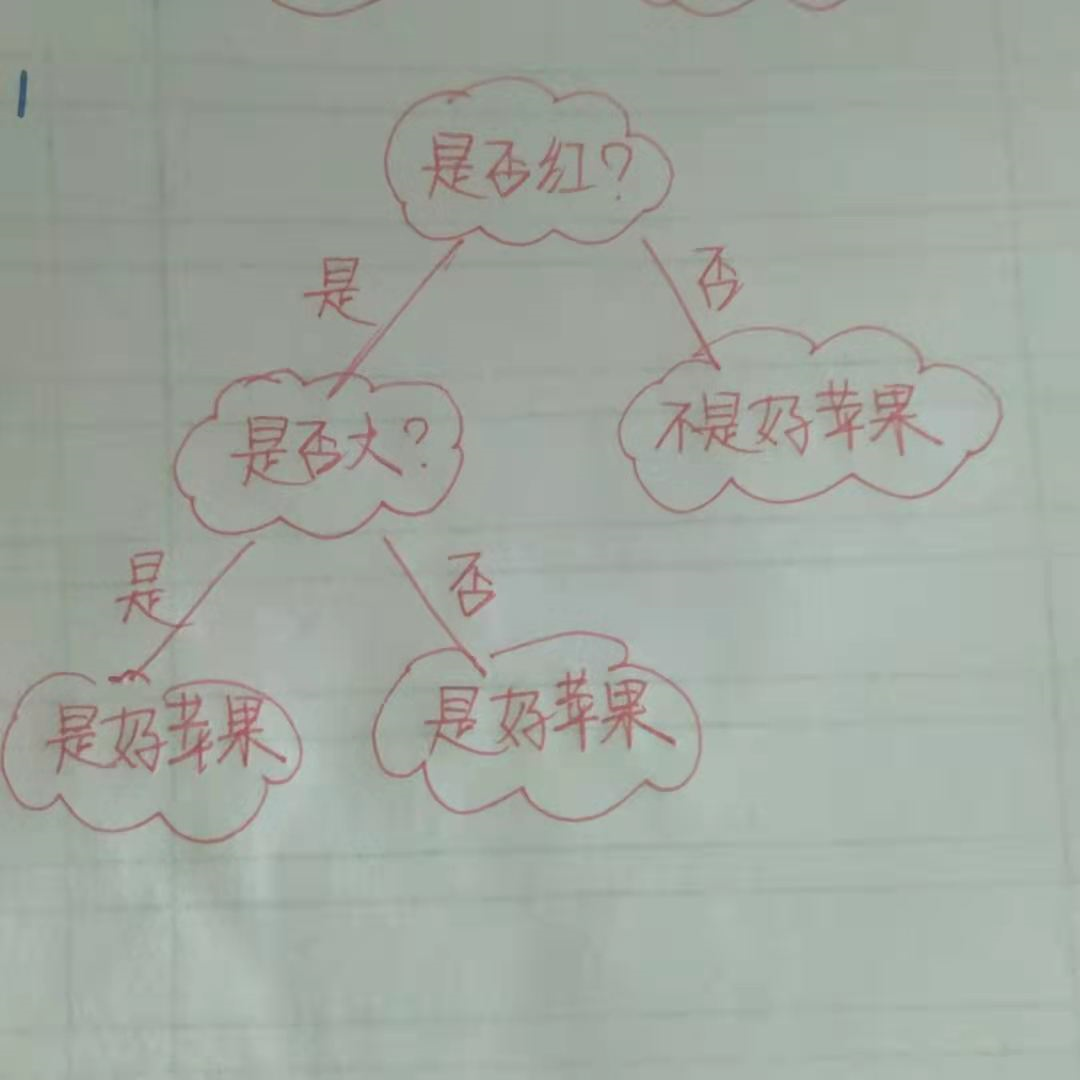 是否红?
是
否
是否大?
不是好苹果
是
否
是好苹果
是好苹果